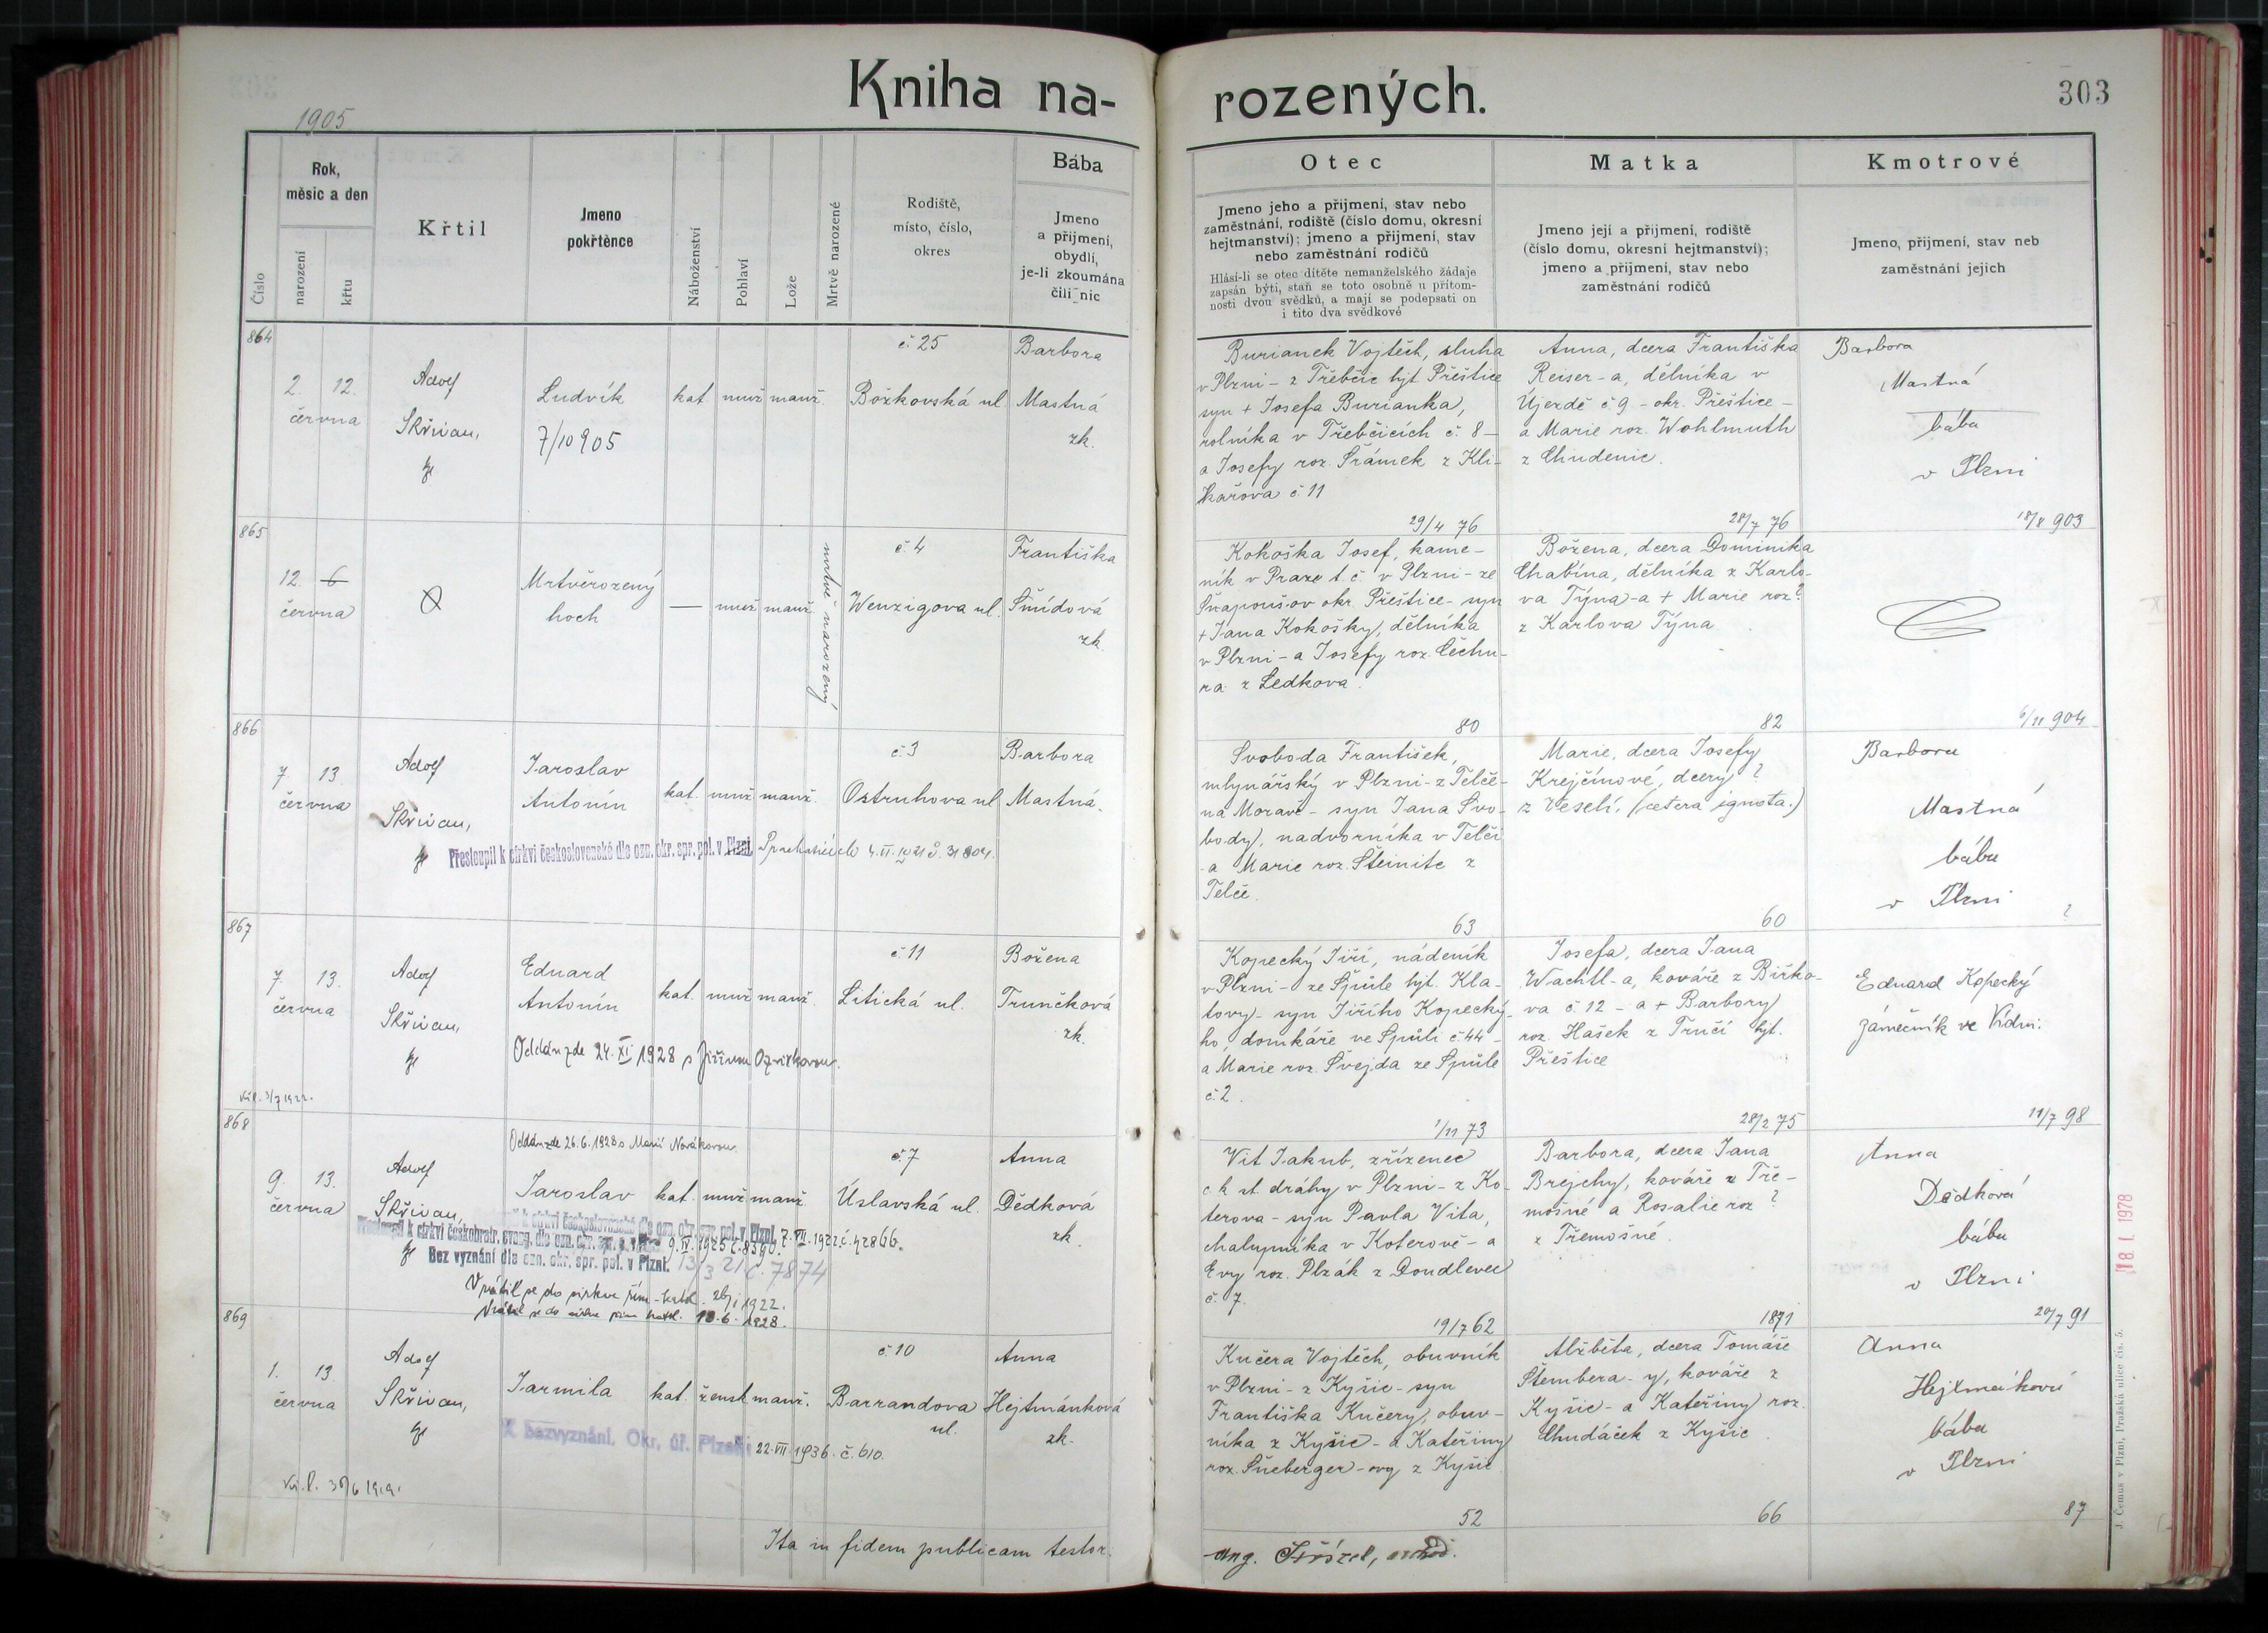 Kniha na-
rozených.
303
1905
Číslo
Rok,
měsíc a den
narození
křtu
Křtil
Jmeno
pokřtěnce
Náboženství
Pohlaví
Lože
Mrtvě narozené
Rodiště,
místo, číslo,
okres
Bába
Jmeno
a příjmení,
obydlí,
je-li zkoumána
čili nic
Otec
Jmeno jeho a příjmení, stav nebo
zaměstnání, rodiště (číslo domu, okresní
hejtmanství); jmeno a příjmení, stav
nebo zaměstnání rodičů
Hlásí-li se otec dítěte nemanželského žádaje
zapsán býti, staň se toto osobně u přítom-
nosti dvou svědků, a mají se podepsati on
i tito dva svědkové
Matka
Jmeno její a příjmení, rodiště
(číslo domu, okresní hejtmanství);
jmeno a příjmení, stav nebo
zaměstnání rodičů
Kmotrové
Jmeno, příjmení, stav neb
zaměstnání jejich
864
2. 12.
června
Adolf
Skřivan,
Ludvík
7/10 905
kat muž manž.
č. 25
Božkovská ul
Barbora
Mastná
zk.
Burianek Vojtěch, sluha
v Plzni - z Třebčic hjt Přeštice
syn + Josefa Burianka,
rolníka v Třebčicích č. 8 -
a Josefy roz. Šrámek z Kli-
kařova č. 11
29/4 76
Anna, dcera Františka
Reiser-a, dělníka v
Újezdě č. 9 - okr. Přeštice -
a Marie roz. Wohlmuth
z Chudenic.
28/7 76
Barbora
Mastná
bába
v Plzni
18/8 903
865
12. 6
června
Mrtvěrozený
hoch
— muž manž.
mrtvě narozený
č. 4
Wenzigova ul.
Františka
Šmídová
zk.
Kokoška Josef, kame-
ník v Praze t. č. v Plzni - ze
Šnapoušov okr. Přeštice - syn
+ Jana Kokošky, dělníka
v Plzni - a Josefy roz. Čechu-
ra z Ledkova.
80
Božena, dcera Dominika
Chabína, dělníka z Karlo-
va Týna - a + Marie roz ?
z Karlova Týna.
82
6/11 904
866
7. 13.
června
Adolf
Skřivan,
Jaroslav
Antonín
kat. muž manž.
č. 3
Ostruhova ul
Barbora
Mastná.
Přestoupil k církvi československé dle ozn. okr. spr. pol. v Plzni
Svoboda František,
mlynářský v Plzni - z Telče -
na Moravě - syn Jana Svo-
body, nadvorníka v Telči
a Marie roz. Šteinite z
Telče.
63
Marie, dcera Josefy
Krejčínové, dcery ?
z Veselí. (cetera ignota.)
60
Barbora
Mastná
bába
v Plzni
?
867
7. 13.
června
Adolf
Skřivan,
Eduard
Antonín
kat. muž manž.
č. 11
Litická ul.
Božena
Trunčková
zk.
Oddán zde 24. XI 1928 s
Kopecký Jiří, nádeník
v Plzni - ze Špůle hjt. Kla-
tovy - syn Jiřího Kopecký-
ho, domkáře ve Špůli č. 44 -
a Marie roz. Švejda ze Špůle
č. 2.
1/11 73
Josefa, dcera Jana
Wachtl-a, kováře z Biřko-
va č. 12 - a + Barbory
roz. Hašek z Tručí hjt.
Přeštice
28/2 75
Eduard Kopecký
zámečník ve Vídni.
11/7 98
868
Oddán zde 26.6.1928 s Marií Novákovou
9. 13.
června
Adolf
Skřivan,
Jaroslav
kat. muž manž.
č. 7
Úslavská ul.
Anna
Dědková
zk.
k církvi československé dle ozn. okr. spr. pol. v Plzni 7. VII. 1922. č. 42866.
Přestoupil k církvi českobratr. evang. dle ozn. okr. spr. 9. IV. 1925 č. 8390.
Bez vyznání dle ozn. okr. spr. pol. v Plzni. 13/3 21 č. 7874
Vrátil se do církve řím-kat. 26/1 1922.
Vrátil se do církve řím kat. 18.6.1928.
Vít Jakub, zřízenec
c. k. st. dráhy v Plzni - z Ko-
terova - syn Pavla Víta,
chalupníka v Koterově - a
Evy roz. Plzák z Doudlevec
č. 7.
19/7 62
Barbora, dcera Jana
Brejchy, kováře z Tře-
mošné a Rosalie roz ?
z Třemošné.
1871
Anna
Dědková
bába
v Plzni
20/7 91
869
1. 13.
června
Adolf
Skřivan,
Jarmila
kat. žensk manž.
č. 10
Barrandova
ul.
Anna
Hejtmánková
zk.
K bezvyznání. Okr. úř. Plzeň 22. VII. 1936. č. 610.
Kučera Vojtěch, obuvník
v Plzni - z Kyšic - syn
Františka Kučery, obuv-
níka z Kyšic - a Kateřiny
roz. Šneberger-ovy z Kyšic
52
Alžběta, dcera Tomáše
Štembera-y, kováře z
Kyšic - a Kateřiny roz.
Chudáček z Kyšic.
66
Anna
Hejtmánková
bába
v Plzni
87
Ita in fidem publicam testor.
18 I. 1978
J. Čemus v Plzni, Pražská ulice čís. 5.